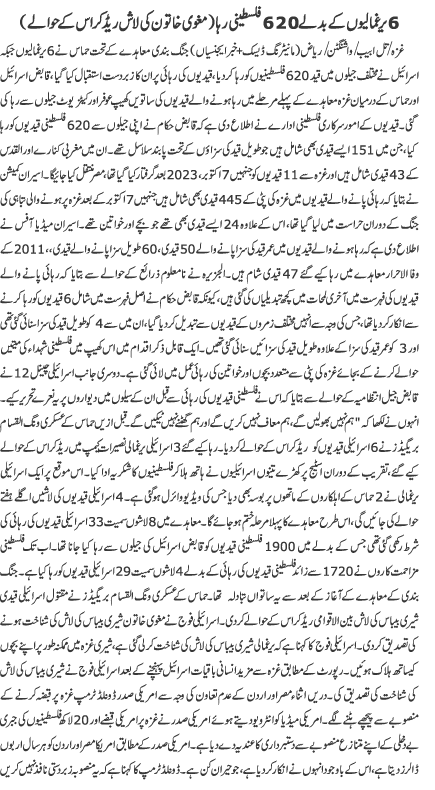 6 یرغمالیوں کے بدلے 620 فلسطینی رہا (مغوی خاتون کی لاش ریڈ کراس کے حوالے)
غزہ/تل ابیب/واشنگٹن/ریاض (مانیٹرنگ ڈیسک+خبر ایجنسیاں) جنگ بندی معاہدے کے تحت حماس نے 6 یرغمالیوں جبکہ
اسرائیل نے مختلف جیلوں میں قید 620 فلسطینیوں کو رہا کر دیا، قیدیوں کی رہائی پر ان کا زبردست استقبال کیا گیا، قابض اسرائیل
اور حماس کے درمیان غزہ معاہدے کے پہلے مرحلے میں رہا ہونے والے قیدیوں کی ساتویں کھیپ عوفر اور کیتزیوٹ جیلوں سے رہا کی
گئی۔ قیدیوں کے امور سرکاری فلسطینی ادارے نے اطلاع دی ہے کہ قابض حکام نے اپنی جیلوں سے 620 فلسطینیوں کو رہا
کیا، جن میں 151 ایسے قیدی بھی شامل ہیں جو طویل قید کی سزاؤں کے تحت پابند سلاسل تھے۔ ان میں مغربی کنارے اور القدس
کے 43 قیدی شامل ہیں اور غزہ سے 11 قیدیوں کو جنہیں 7 اکتوبر، 2023 کے بعد گرفتار کیا گیا تھا، مصر منتقل کیا جائیگا۔ اسیران کمیشن
نے بتایا کہ رہائی پانے والے قیدیوں میں غزہ کی پٹی کے 445 قیدی بھی شامل ہیں جنہیں 7 اکتوبر کے بعد غزہ پر ہونے والی تباہی کی
جنگ کے دوران حراست میں لیا گیا تھا، اس کے علاوہ 24 ایسے قیدی بھی تھے جو بچے اور خواتین تھے۔ اسیران میڈیا آفس نے
اطلاع دی ہے کہ رہا ہونے والے قیدیوں میں عمر قید کی سزا پانے والے 50 قیدی، 60 طویل سزا پانے والے قیدی،، 2011 کے
وفا الاحرار معاہدے میں رہا کیے گئے 47 قیدی شام ہیں۔ الجزیرہ نے نامعلوم ذرائع کے حوالے سے بتایا کہ رہائی پانے والے
قیدیوں کی فہرست میں آخری لمحات میں کچھ تبدیلیاں کی گئی ہیں، کیونکہ قابض حکام نے اصل فہرست میں شامل 6 قیدیوں کو رہا کرنے
سے انکار کر دیا تھا، جس کی وجہ سے انہیں مختلف زمروں کے قیدیوں سے تبدیل کر دیا گیا، ان میں سے 4 کو طویل قید کی سزا سنائی گئی تھی
اور 3 کو عمر قید کی سزا کے علاوہ طویل قید کی سزائیں سنائی گئی تھیں۔ ایک قابل ذکر اقدام میں اس کھیپ میں فلسطینی شہداء کی میتیں
حوالے کرنے کے بجائے غزہ کی پٹی سے متعدد بچوں اور خواتین کی رہائی عمل میں لائی گئی ہے۔ دوسری جانب اسرائیلی چینل 12 نے
قابض جیل انتظامیہ کے حوالے سے بتایا کہ اس نے فلسطینی قیدیوں کی رہائی سے قبل ان کے سیلوں میں دیواروں پر یہ نعرے تحریر کیے۔
انہوں نے لکھا کہ "ہم نہیں بھولیں گے، ہم معاف نہیں کریں گے اور ہم گھٹنے نہیں ٹیکیں گے۔ قبل ازیں حماس کے عسکری ونگ القسام
بریگیڈز نے 6 اسرائیلی قیدیوں کو ریڈ کراس کے حوالے کر دیا۔ رہا کیے گئے 3 اسرائیلی یرغمالی نصیرات کیمپ میں ریڈ کراس کے حوالے
کیے گئے، تقریب کے دوران اسٹیج پر کھڑے تینوں اسرائیلیوں نے ہاتھ ہلا کر فلسطینیوں کا شکریہ ادا کیا۔ اس موقع پر ایک اسرائیلی
یرغمالی نے 2 حماس کے اہلکاروں کے ماتھوں پر بوسہ بھی دیا جس کی ویڈیو وائرل ہو گئی ہے۔ 4 اسرائیلی قیدیوں کی لاشیں اگلے ہفتے
حوالے کی جائیں گی، اس طرح معاہدے کا پہلا مرحلہ ختم ہو جائے گا۔ معاہدے میں 8 لاشوں سمیت 33 اسرائیلی قیدیوں کی رہائی کی
شرط رکھی گئی تھی جس کے بدلے میں 1900 فلسطینی قیدیوں کو قابض اسرائیل کی جیلوں سے رہا کیا جانا تھا۔ اب تک فلسطینی
مزاحمت کاروں نے 1720 سے زائد فلسطینی قیدیوں کی رہائی کے بدلے 4 لاشوں سمیت 29 اسرائیلی قیدیوں کو رہا کیا ہے۔ جنگ
بندی کے معاہدے کے آغاز کے بعد سے یہ ساتواں تبادلہ تھا۔ حماس کے عسکری ونگ القسام بریگیڈز نے مقتول اسرائیلی قیدی
شیری بیباس کی لاش بین الاقوامی ریڈ کراس کے حوالے کر دی۔ اسرائیلی فوج نے مغوی خاتون شیری بیباس کی لاش کی شناخت
کی تصدیق کر دی۔ اسرائیلی فوج کا کہنا ہے کہ یرغمالی شیری بیباس کی لاش کی شناخت کر لی گئی ہے، شیری غزہ میں ممکنہ طور پر اپنے بچوں
کیساتھ ہلاک ہوئیں۔ رپورٹ کے مطابق غزہ سے مزید انسانی باقیات اسرائیل پہنچنے کے بعد اسرائیلی فوج نے شیری بیباس کی لاش
کی شناخت کی تصدیق کی۔ دریں اثناء مصر اور اردن کے عدم تعاون کی وجہ سے امریکی صدر ڈونلڈ ٹرمپ غزہ پر قبضہ کرنے کے
منصوبے سے پیچھے ہٹنے لگے۔ امریکی میڈیا کو انٹرویو دیتے ہوئے امریکی صدر نے غزہ پر امریکی قبضے اور 20 لاکھ فلسطینیوں کی جبری
بے دخلی کے اپنے متنازع منصوبے سے دستبرداری کا عندیہ دے دیا ہے۔ امریکی صدر کے مطابق امریکا مصر اور اردن کو ہر سال اربوں
ڈالرز دیتا ہے، اس کے باوجود انہوں نے انکار کر دیا ہے، جو حیران کن ہے۔ ڈونلڈ ٹرمپ کا کہنا ہے کہ یہ منصوبہ زبردستی نافذ نہیں کریں